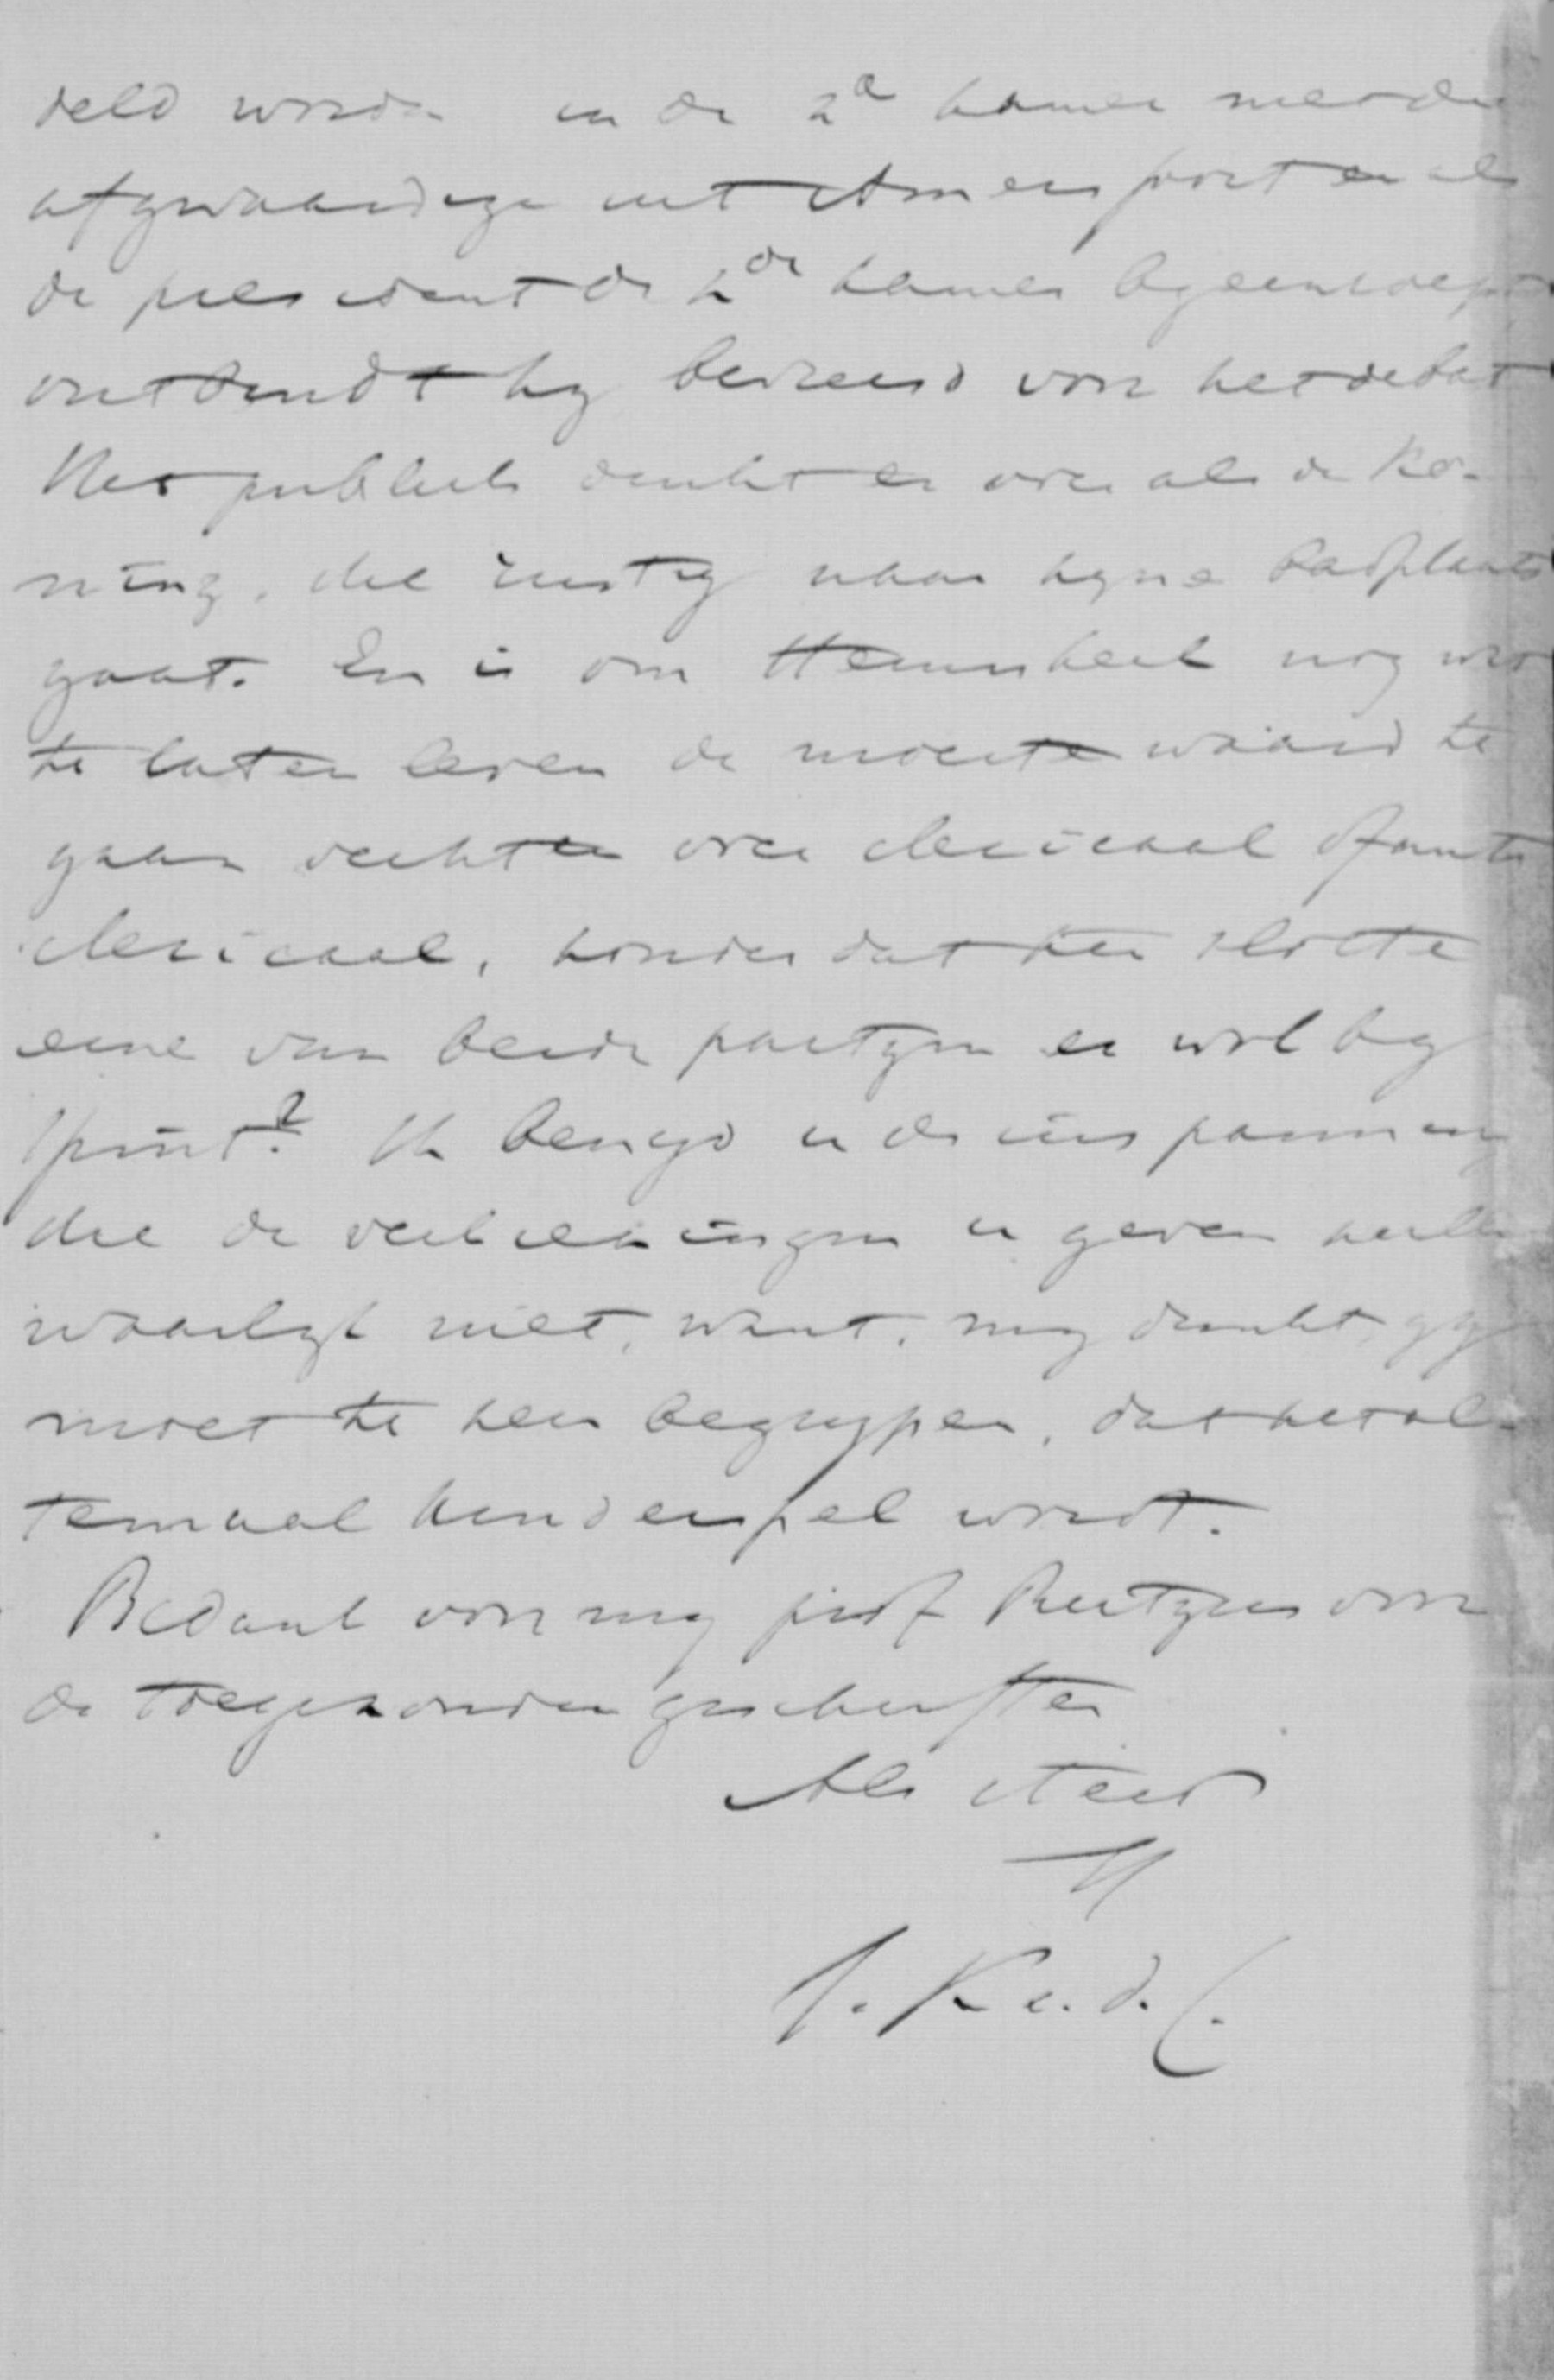 deld worden in de 2e kamer
afgevaardigde uit Amersfoort en als
de president de 2de kamer bijeenroept
ontbindt hij bevreesd voor het debat
Het publiek denkt er over als de ko-
ning, die rustig naar zijne badplaats
gaat. En is om Heemskerk nog wat
te laten leven de moeite waard te
gaan vechten over clericaal of anti
clericaal, zonder dat ten slotte
eene van beide partijen er wol bij
spint? Ik benijd u de inspanning
die de verkiezingen u geven zullen
waarlijk niet, want, mij dunkt, gij
moet te zeer begrijpen, dat het al-
temaal kinderspel wordt.
Bedank voor mij prof voor
de toegezonden geschriften
Als steeds
J. K. v. d. C.